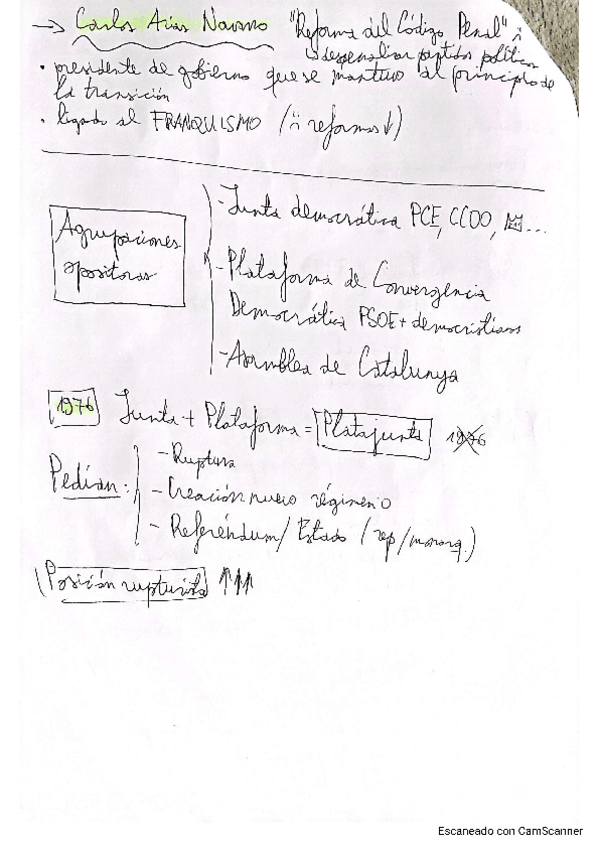 → Carlos Arias Navarro "Reforma del Código Penal" ñ
despenalizar partidos políticos
• presidente de gobierno que se mantuvo al principio de
la transición
• ligado al FRANQUISMO (ñ reformas ↓)
Agrupaciones
opositoras
- Junta democrática PCE, CCOO, ...
- Plataforma de Convergencia
Democrática PSOE + democristianos
- Asamblea de Catalunya
1976 Junta + Plataforma = Platajunta 1976
Pedían:
- Ruptura
- Creación nuevo régimen
- Referéndum / Estado (rep/monarq.)
Posición rupturista ↑↑↑
Escaneado con CamScanner